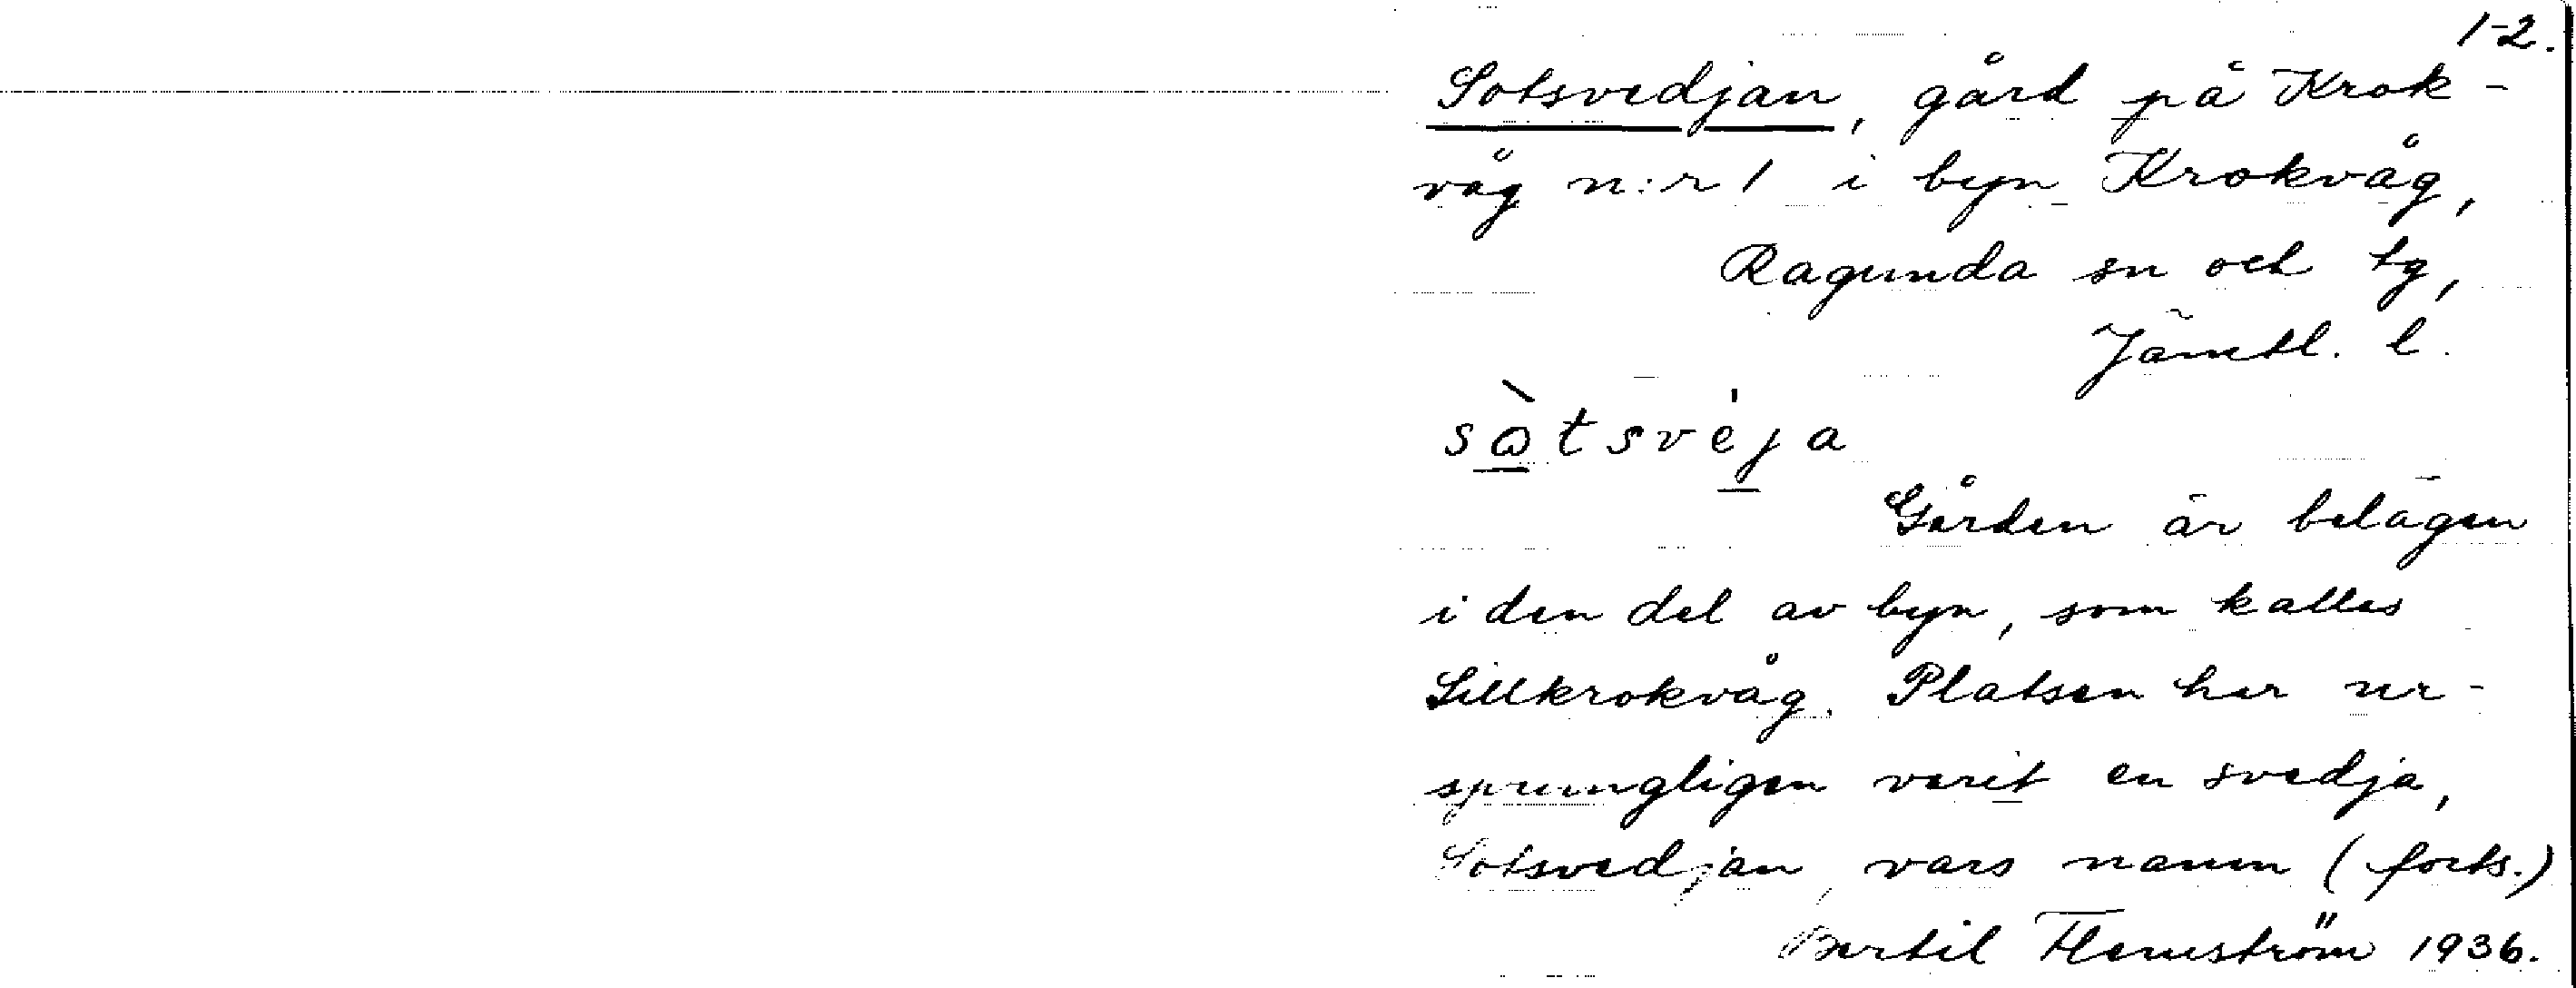 1-2.
Sotsvedjan, gård på Krok-
våg n:r 1 i byn Krokvåg,
Ragunda sn och tg,
Jämtl. l.
sòtsve̍ja
Gården är belägen
i den del av byn, som kallas
Lillkrokvåg. Platsen har ur-
sprungligen varit en svedja,
Sotsvedjan, vars namn (forts.)
Bertil Flemström 1936.